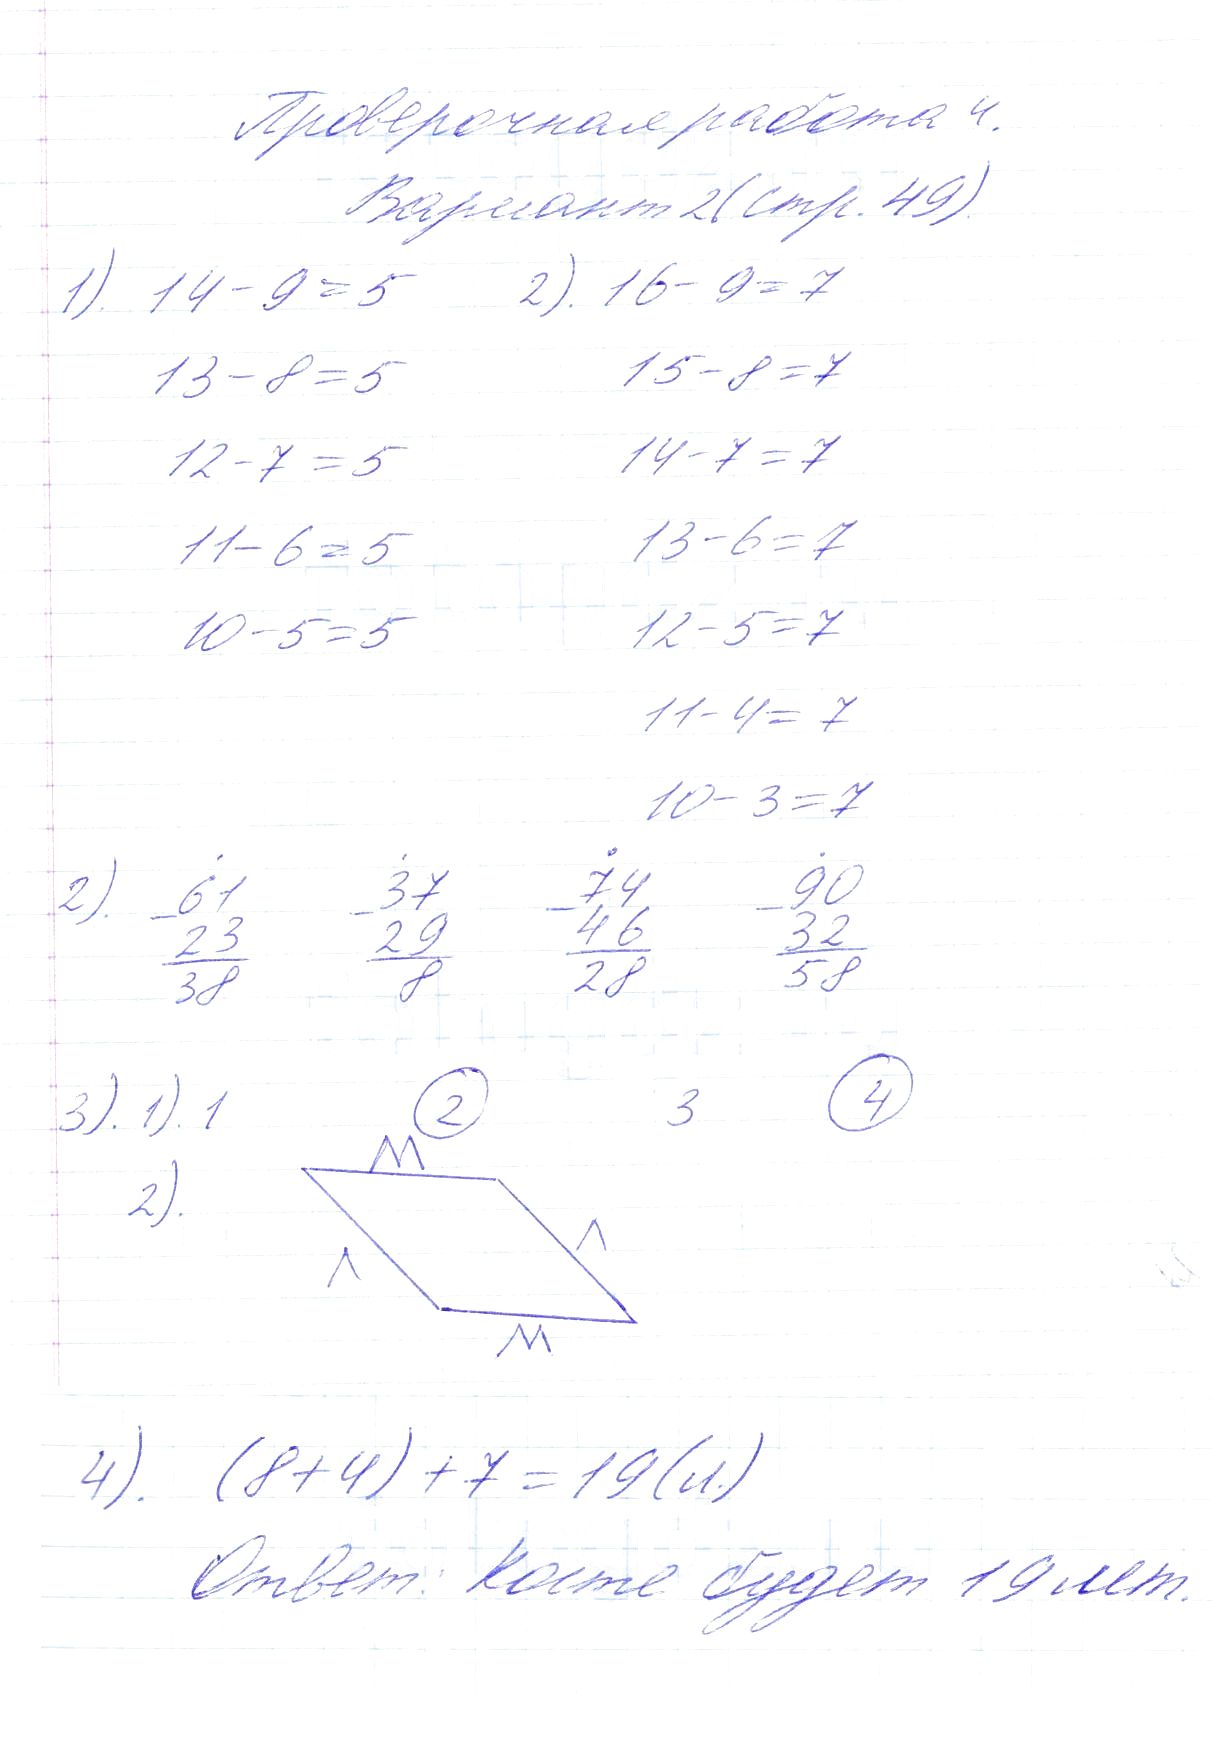 Проверочная работа 4.
Вариант 2 (стр. 49)
1). 14 - 9 = 5 2). 16 - 9 = 7
13 - 8 = 5 15 - 8 = 7
12 - 7 = 5 14 - 7 = 7
11 - 6 = 5 13 - 6 = 7
10 - 5 = 5 12 - 5 = 7
11 - 4 = 7
10 - 3 = 7
2). - 61 - 37 - 74 - 90
23 29 46 32
38 8 28 58
3). 1). 1 2 3 4
М
2).
Л
Л
М
4). (8+4) + 7 = 19 (л.)
Ответ: Косте будет 19 лет.